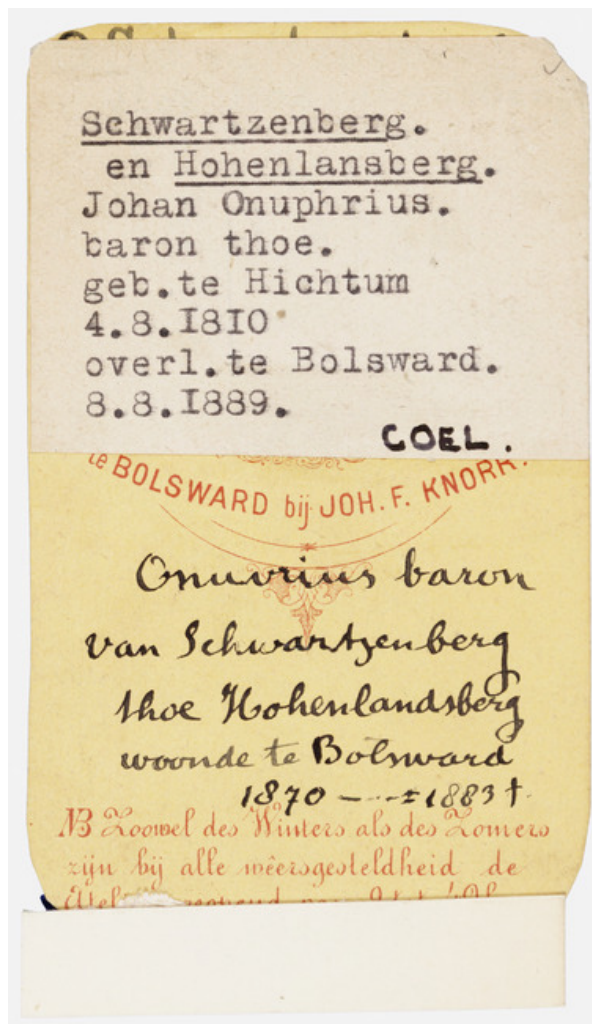 Schwartzenberg.
en Hohenlansberg.
Johan Onuphrius.
baron thoe.
geb.te Hichtum
4.8.1810
overl.te Bolsward.
8.8.1889.
COEL.
te BOLSWARD bij JOH. F. KNORR.
Onuvrius baron
van Schwartzenberg
thoe Hohenlandsberg
woonde te Bolsward
1870 — ..± 1883 †.
NB Zoowel des Winters als des Zomers
zijn bij alle wêersgesteldheid de